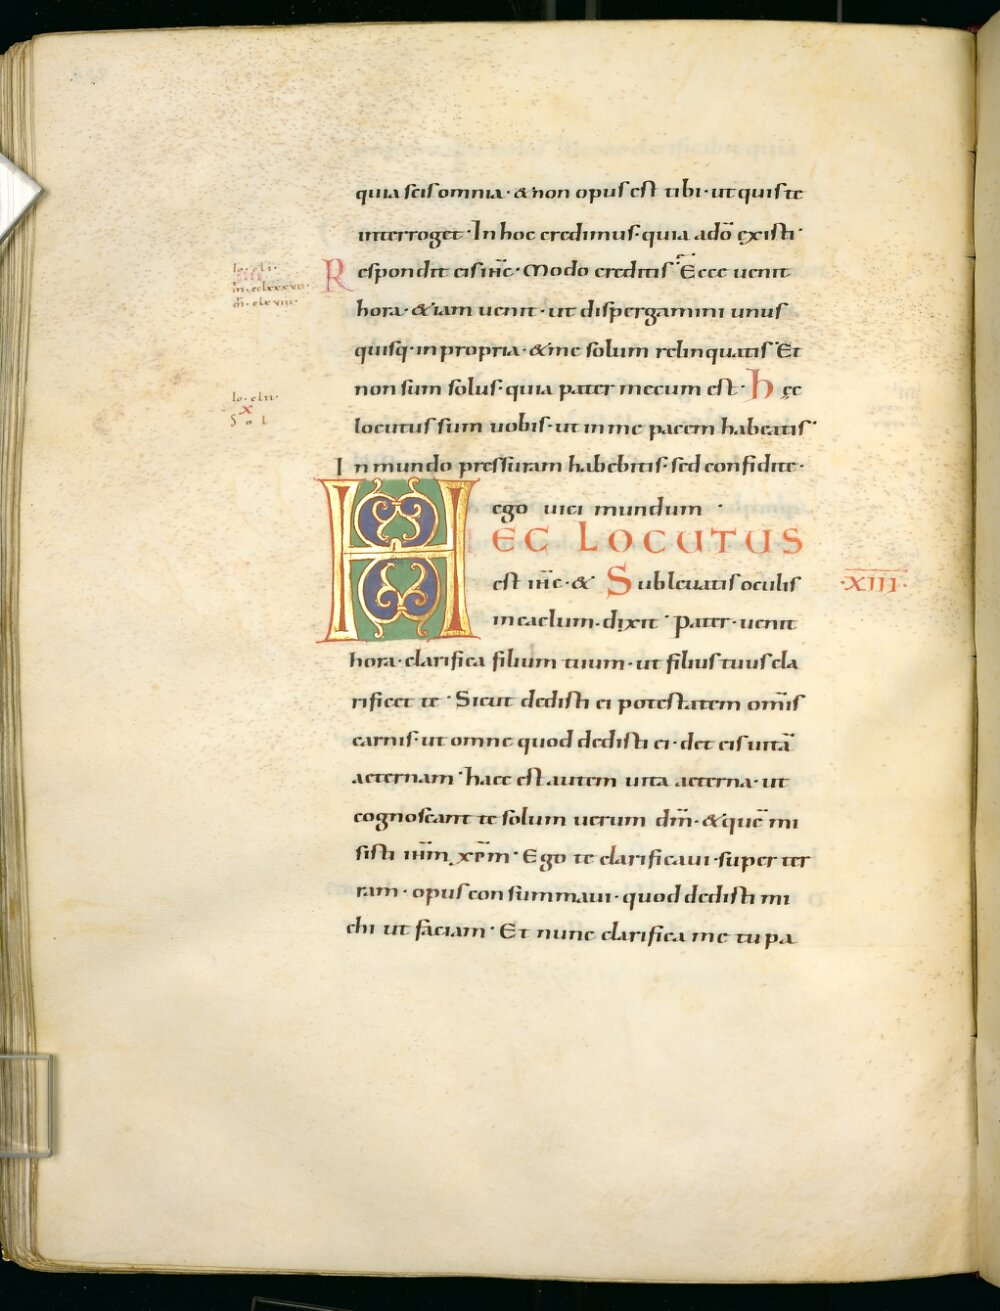 quia scis omnia · & non opus est tibi · ut quis te
interroget · In hoc credimus · quia a dō existi ·
Io · cli ·
IIII
m̄ · cclxxxvii ·
m̄ · clxviii ·
Respondit eis ih̄c · Modo creditis · Ecce uenit
hora · & iam uenit · ut dispergamini unus
quisq · in propria · & me solum relinquatis · Et
non sum solus · quia pater mecum est · hęc
Io · clii ·
X
Sol
locutus sum uobis · ut in me pacem habeatis ·
In mundo pressuram habebitis · sed confidite ·
ego uici mundum ·
HEC LOCUTUS
est ih̄c · & Subleuatis oculis
· XIII ·
in caelum · dixit · Pater · uenit
hora · clarifica filium tuum · ut filius tuus cla
rificet te · Sicut dedisti ei potestatem om̄is
carnis · ut omne quod dedisti ei · det eis uitā
aeternam · haec est autem uita aeterna · ut
cognoscant te solum uerum dm̄ · & quē mi
sisti ih̄m xp̄m · Ego te clarificaui · super ter
ram · opus consummaui · quod dedisti mi
chi ut faciam · Et nunc clarifica me tu pa